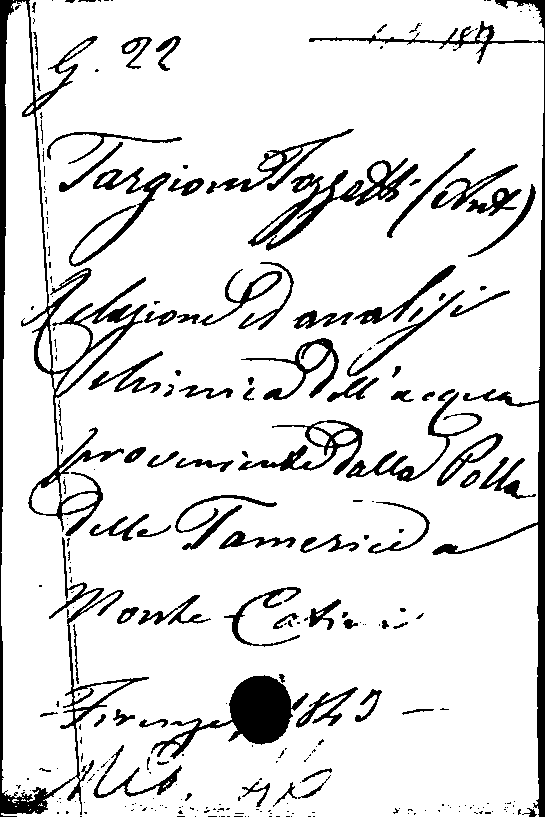 G. 22
Targioni Tozzetti (Ant)
Relazione ed analisi
chimica dell'acqua
proveniente dalla Polla
delle Tamerici a
Monte Catini
Firenze, 1843